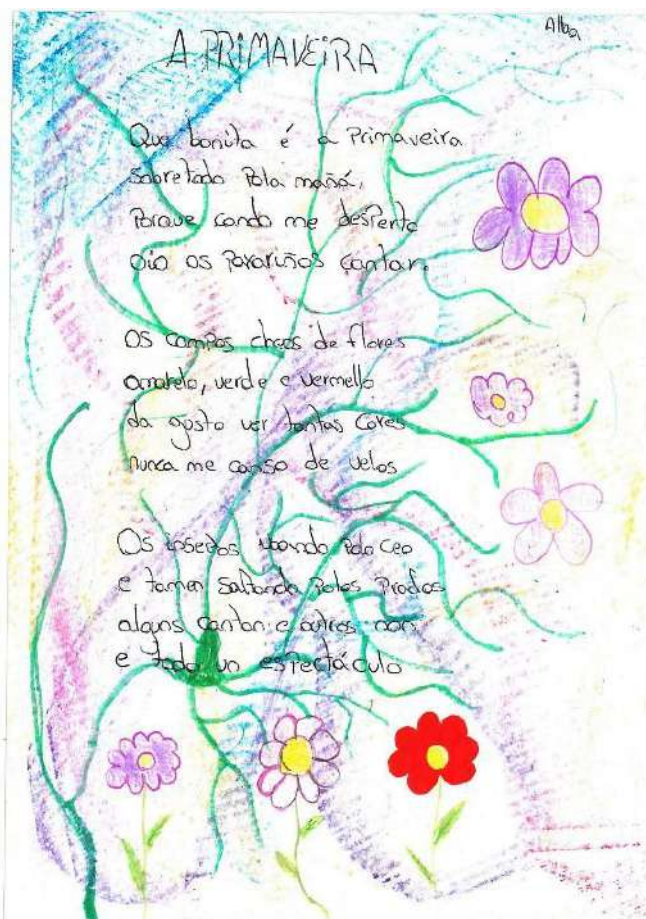 Alba
A PRIMAVEIRA
Que bonita é a Primaveira
Sobretodo Pola mañá,
Porque cando me desperto
oio os Paxariños cantar.
Os campos cheos de flores
amarelo, verde e vermello
da gusto ver tantas cores
nunca me canso de velos
Os insectos voando Polo Ceo
e tamen saltando Polos Prados
algúns cantan e outros non
e todo un espectáculo